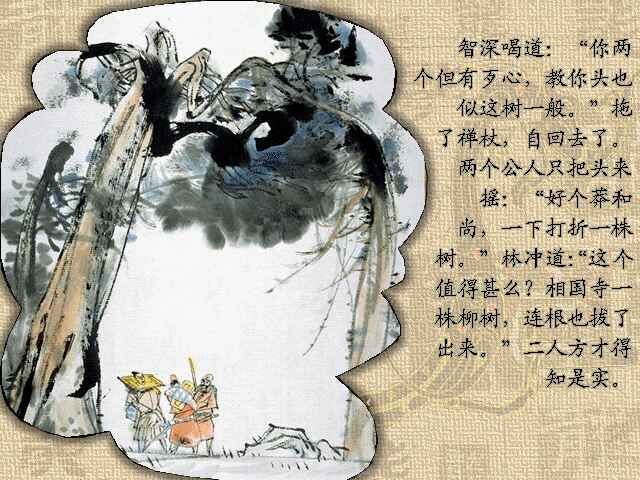 智深喝道：“你两
个但有歹心，教你头也
似这树一般。”拖
了禅杖，自回去了。
两个公人只把头来
摇：“好个莽和
尚，一下打折一株
树。”林冲道：“这个
值得甚么？相国寺一
株柳树，连根也拔了
出来。”二人方才得
知是实。